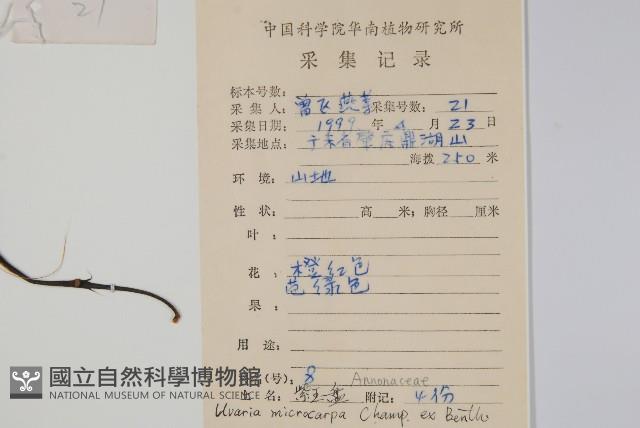 21
中国科学院华南植物研究所
采集记录
标本号数:
采集人: 曾飞燕等 采集号数: 21
采集日期: 1999 年 4 月 23 日
采集地点: 广东省肇庆鼎湖山
海拨 250 米
环境: 山地
性状: 高 米; 胸径 厘米
叶:
花: 橙红色
苞绿色
果:
用途:
(号): 8 Annonaceae
名: 紫玉盘 附记: 4份
Uvaria microcarpa Champ. ex Benth.
國立自然科學博物館
NATIONAL MUSEUM OF NATURAL SCIENCE